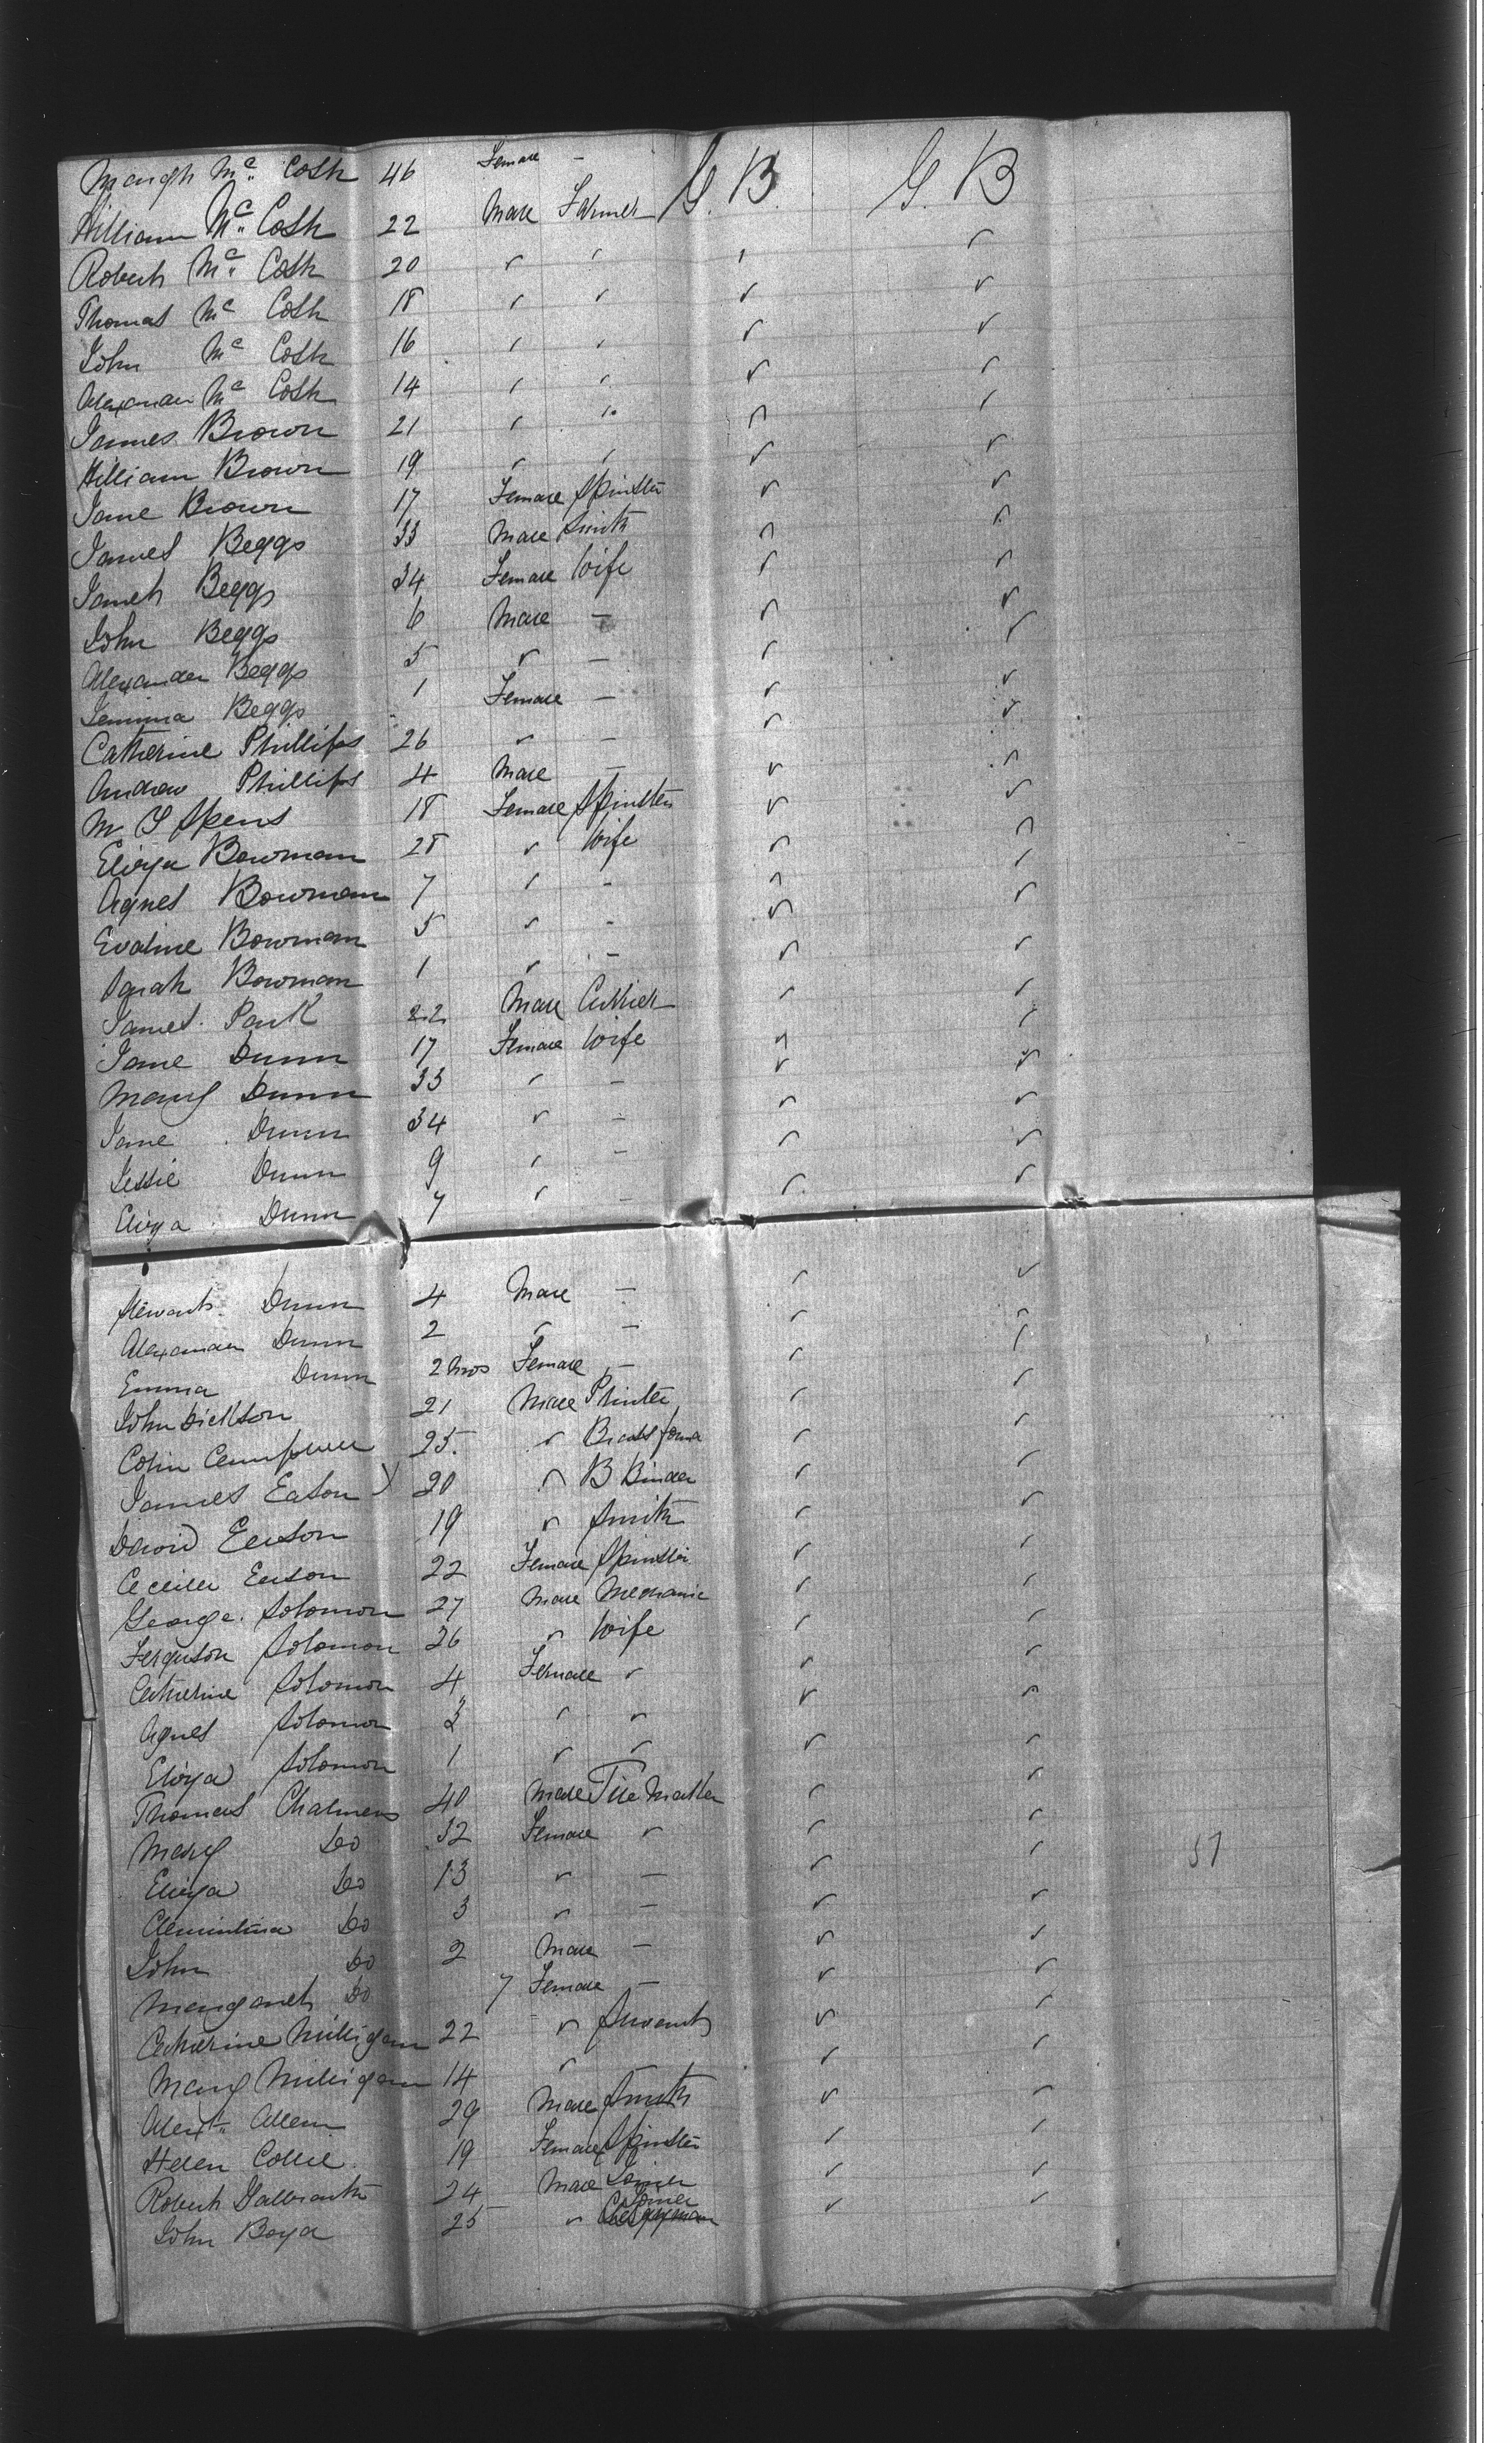 Margt Mc Cosh 46 Female - G. B. G. B
William Mc Cosh 22 Male Farmer
Robert Mc Cosh 20 " " " "
Thomas Mc Cosh 18 " " " "
John Mc Cosh 16 " " " "
Alexander Mc Cosh 14 " " " "
James Brown 21 " " " "
William Brown 19 " " " "
Jane Brown 17 Female Spinster " "
James Beggs 33 Male Smith " "
Janet Beggs 34 Female Wife " "
John Beggs 6 Male - " "
Alexander Beggs 5 " - " "
Jemima Beggs 1 Female - " "
Catherine Phillips 26 " - " "
Andrew Phillips 4 Male - " "
M. J Spens 18 Female Spinster " "
Eliza Bowman 28 " Wife " "
Agnes Bowman 7 " - " "
Evaline Bowman 5 " - " "
Sarah Bowman 1 " - " "
James Park 22 Male Currier " "
Jane Dunn 17 Female Wife " "
Mary Dunn 33 " - " "
Jane Dunn 34 " - " "
Jessie Dunn 9 " - " "
Eliza Dunn 7 " - " "
Stewart Dunn 4 Male - " "
Alexander Dunn 2 " - " "
Emma Dunn 2 Mos Female - " "
John Dickson 21 Male Printer " "
Colin Campbell 25 " " "
James Eason 20 " B Binder " "
David Eason 19 " Smith " "
Cecilia Eason 22 Female Spinster " "
George Solomon 27 Male Mechanic " "
Ferguson Solomon 26 " Wife " "
Catherine Solomon 4 Female " " "
Agnes Solomon 3 " " " "
Eliza Solomon 1 " " " "
Thomas Chalmers 40 Male Tile Maker " "
Mary Do 32 Female " " "
Eliza Do 13 " - " " 51
Clemintina Do 3 " - " "
John Do 2 Male - " "
Margaret Do 7 Female - " "
Catherine Milligan 22 " Servant " "
Mary Milligan 14 " " "
Alexr Allen 29 Male Smith " "
Helen Collie 19 Female Spinster " "
Robert Galbraith 24 Male Joiner " "
John Boyd 25 " Joiner " "